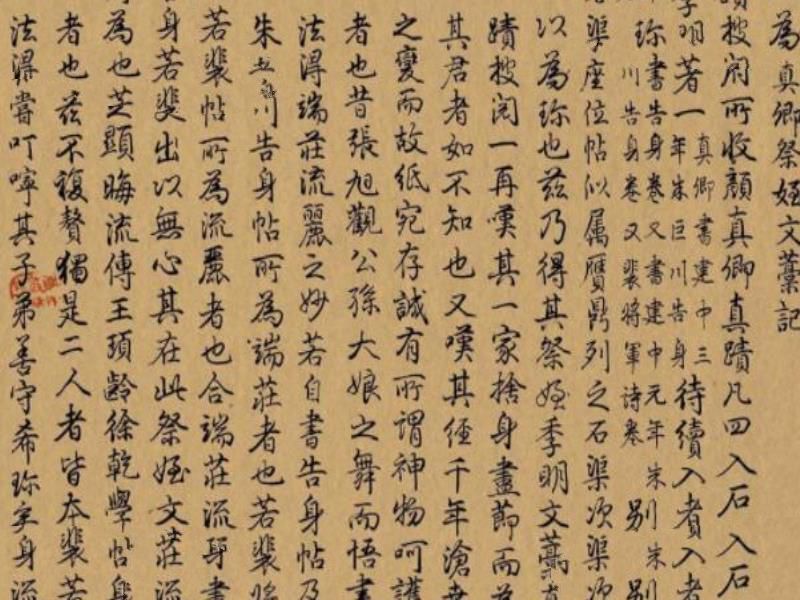 為真卿祭姪文藁記
蹟搜閣所收顏真卿真蹟凡四入石入石
季明著一真卿書建中三年朱巨川告身待續入者入者
珎書告身卷又書建中元年朱川告身卷又裴將軍詩卷別朱別
渠座位帖似属贋鼎列之石渠次渠次
以為珎也茲乃得其祭姪季明文藁
蹟搜閣一再嘆其一家捨身盡節而
其君者如不知也又嘆其經千年滄
之變而故紙宛存誠有所謂神物呵護
者也昔張旭觀公孫大娘之舞而悟書
法得端莊流麗之妙若自書告身帖及
朱巨川告身帖所為端莊者也若裴將
若裴帖所為流麗者也合端莊流
身若斐出以無心其在此祭姪文莊流
為也芝顯晦流傳王頊齡徐乾學帖
者也茲不複贅獨是二人者皆本裴若
法得嘗叮嚀其子弟善守希珎身流